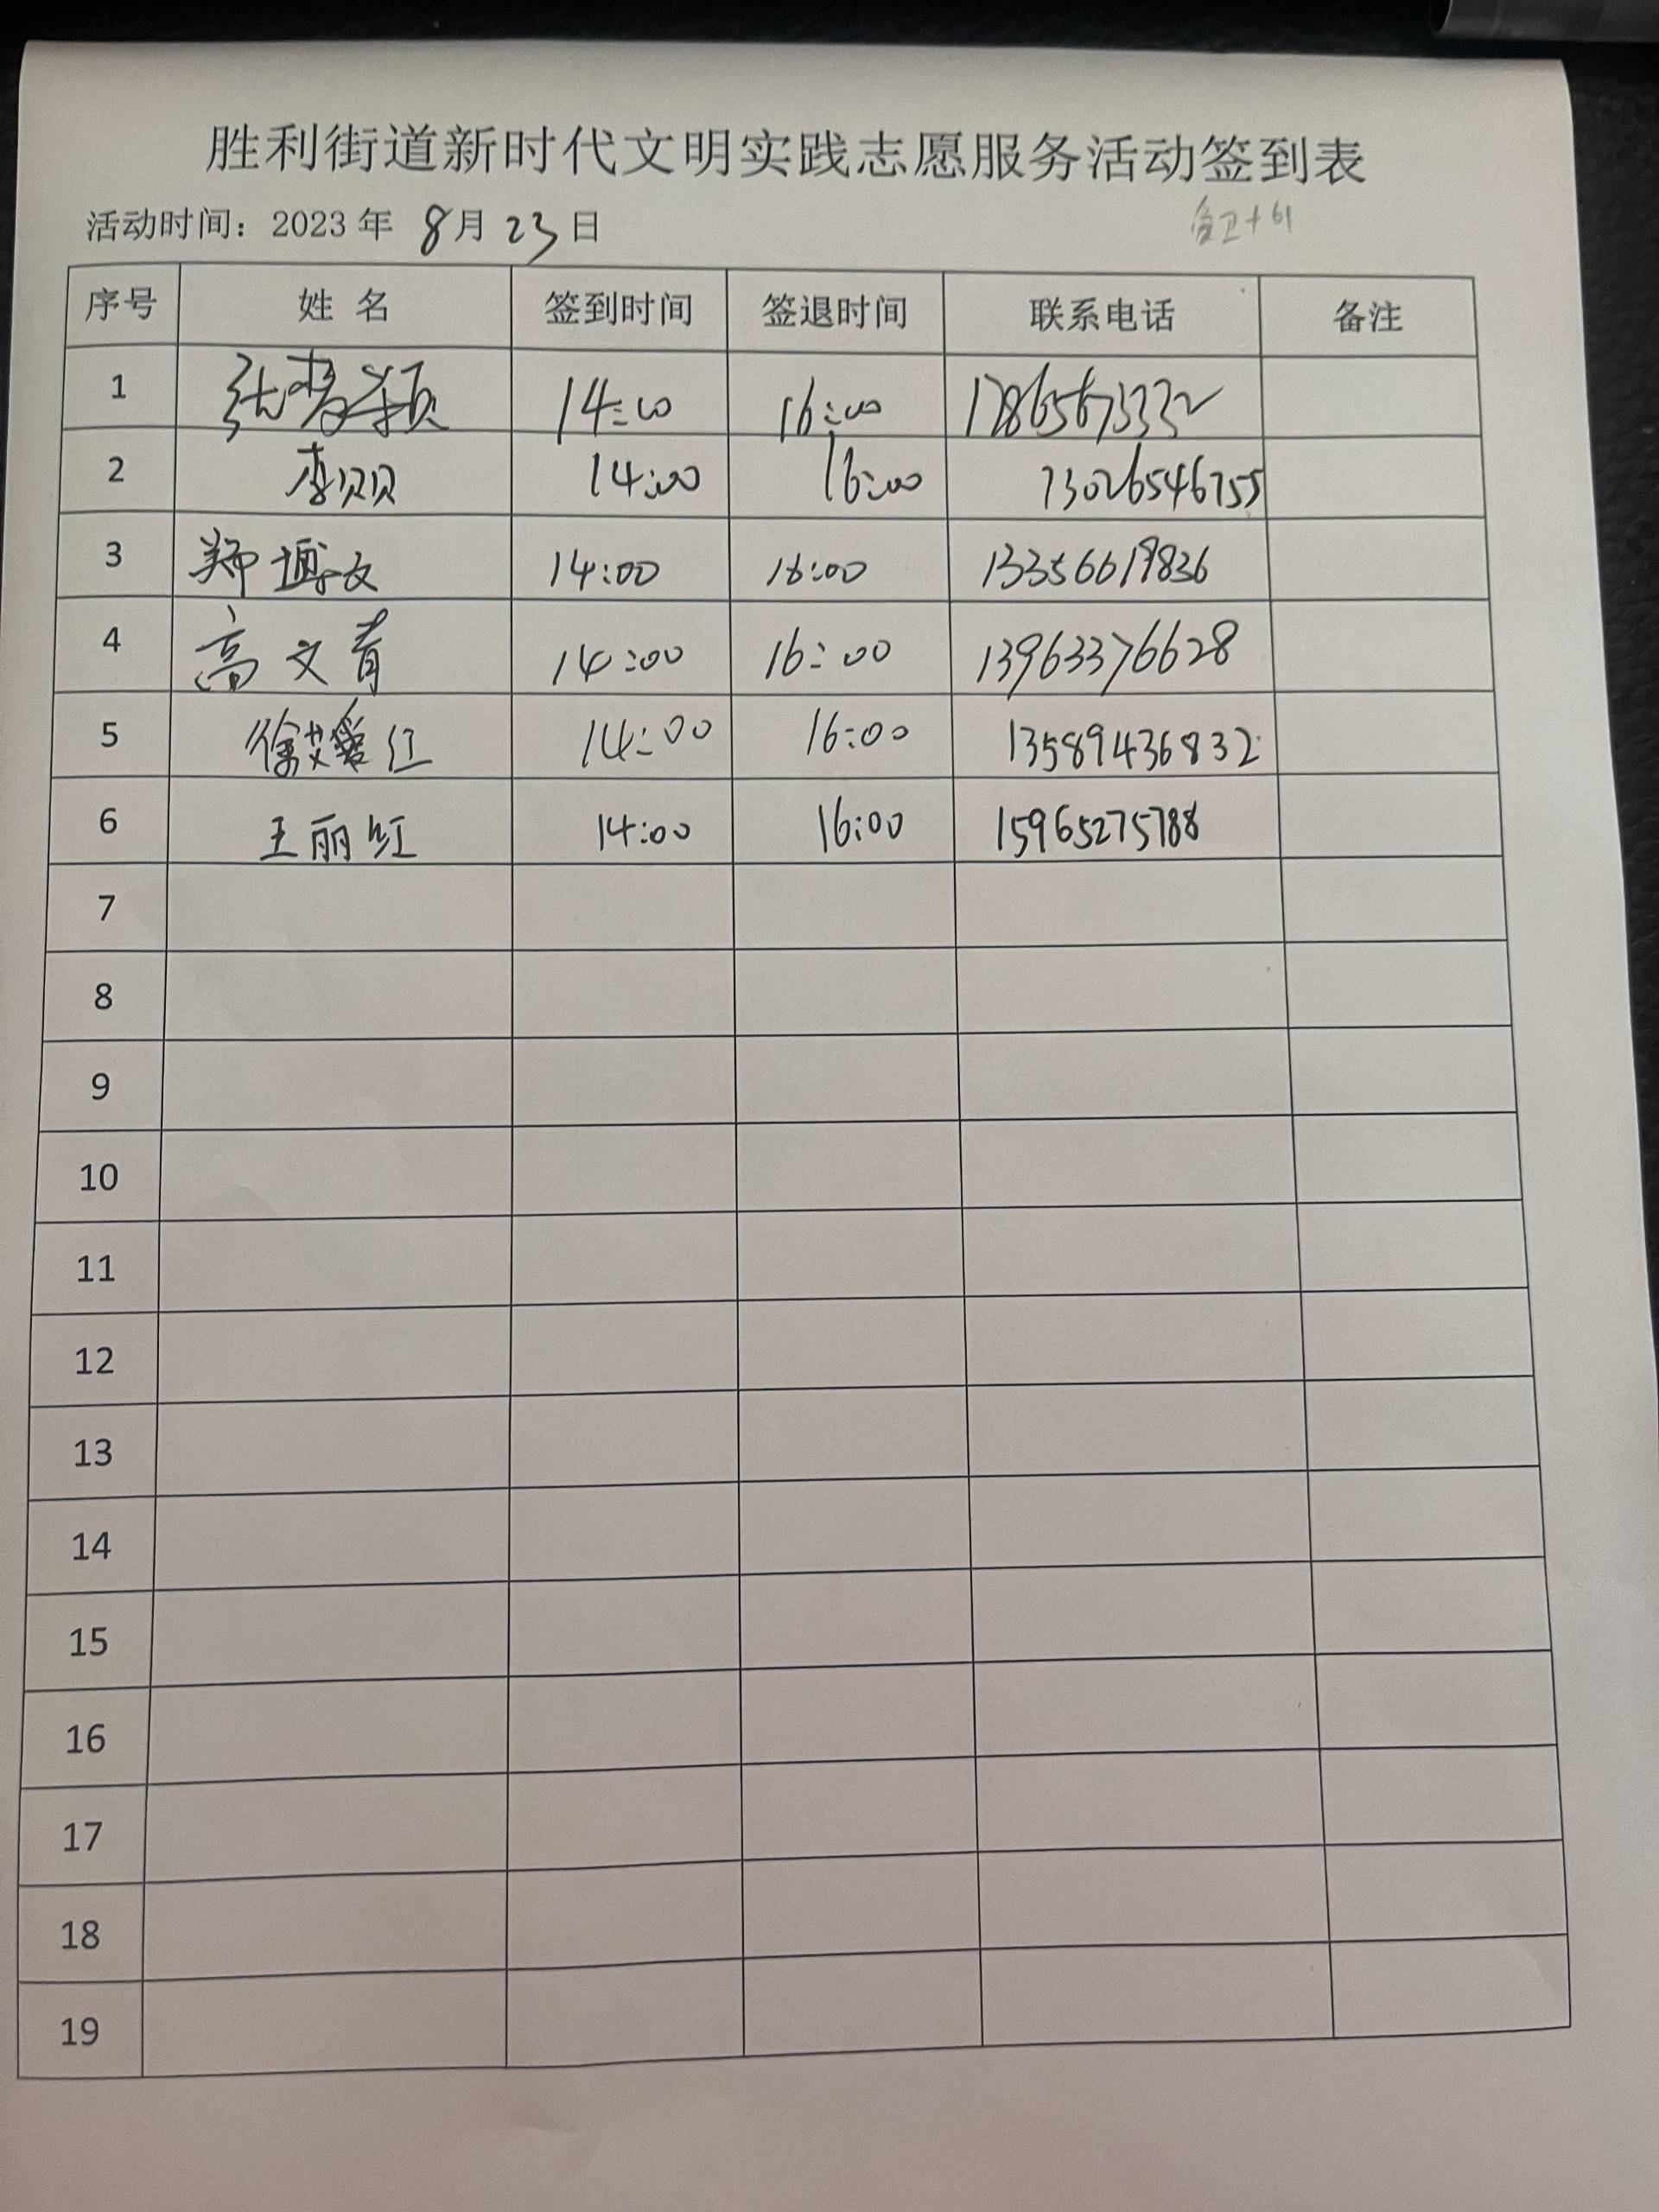 胜利街道新时代文明实践志愿服务活动签到表
活动时间：2023年 8月23日
序号 姓名 签到时间 签退时间 联系电话 备注
1 14:00 16:00
2 李贝贝 14:00 16:00 13026546755
3 郑博文 14:00 16:00 13356619836
4 高文青 14:00 16:00 13963376628
5 14:00 16:00 13589436832
6 王丽红 14:00 16:00 15965275788
7
8
9
10
11
12
13
14
15
16
17
18
19